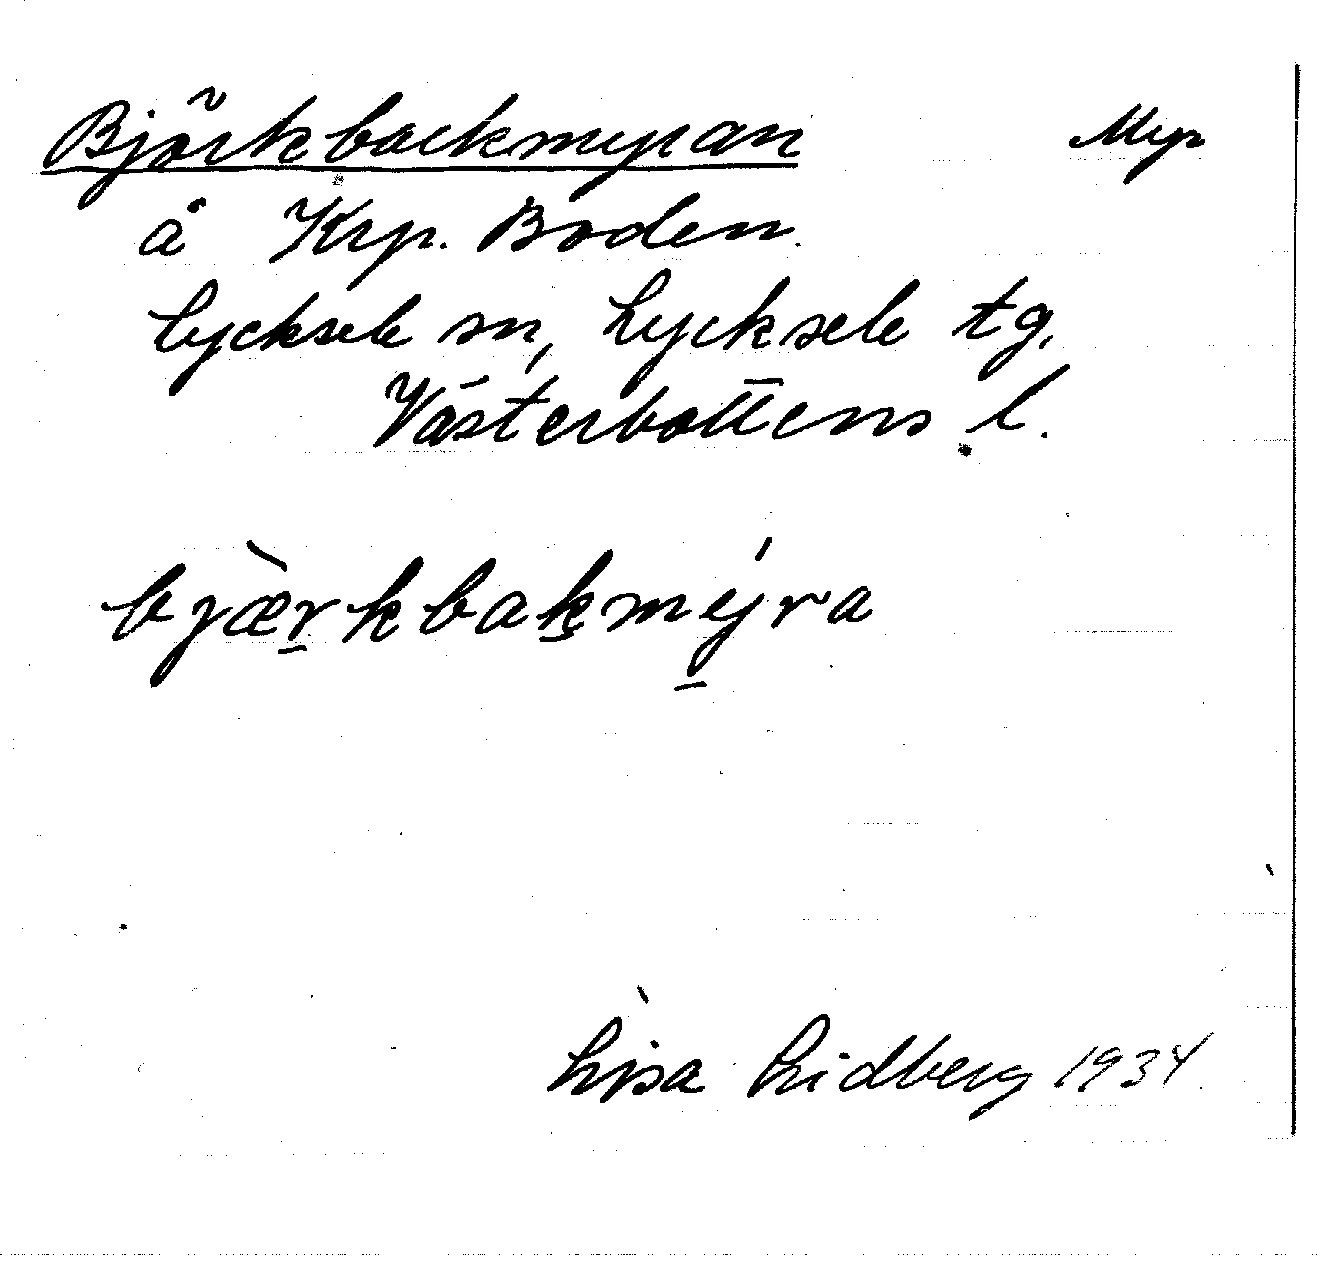 Björkbackmyran Myr
å Krp. Boden.
Lycksele sn, Lycksele tg.
Västerbottens l.
bjæ̀r̲kbak̲mý̲ra
Lisa Lidberg 1934